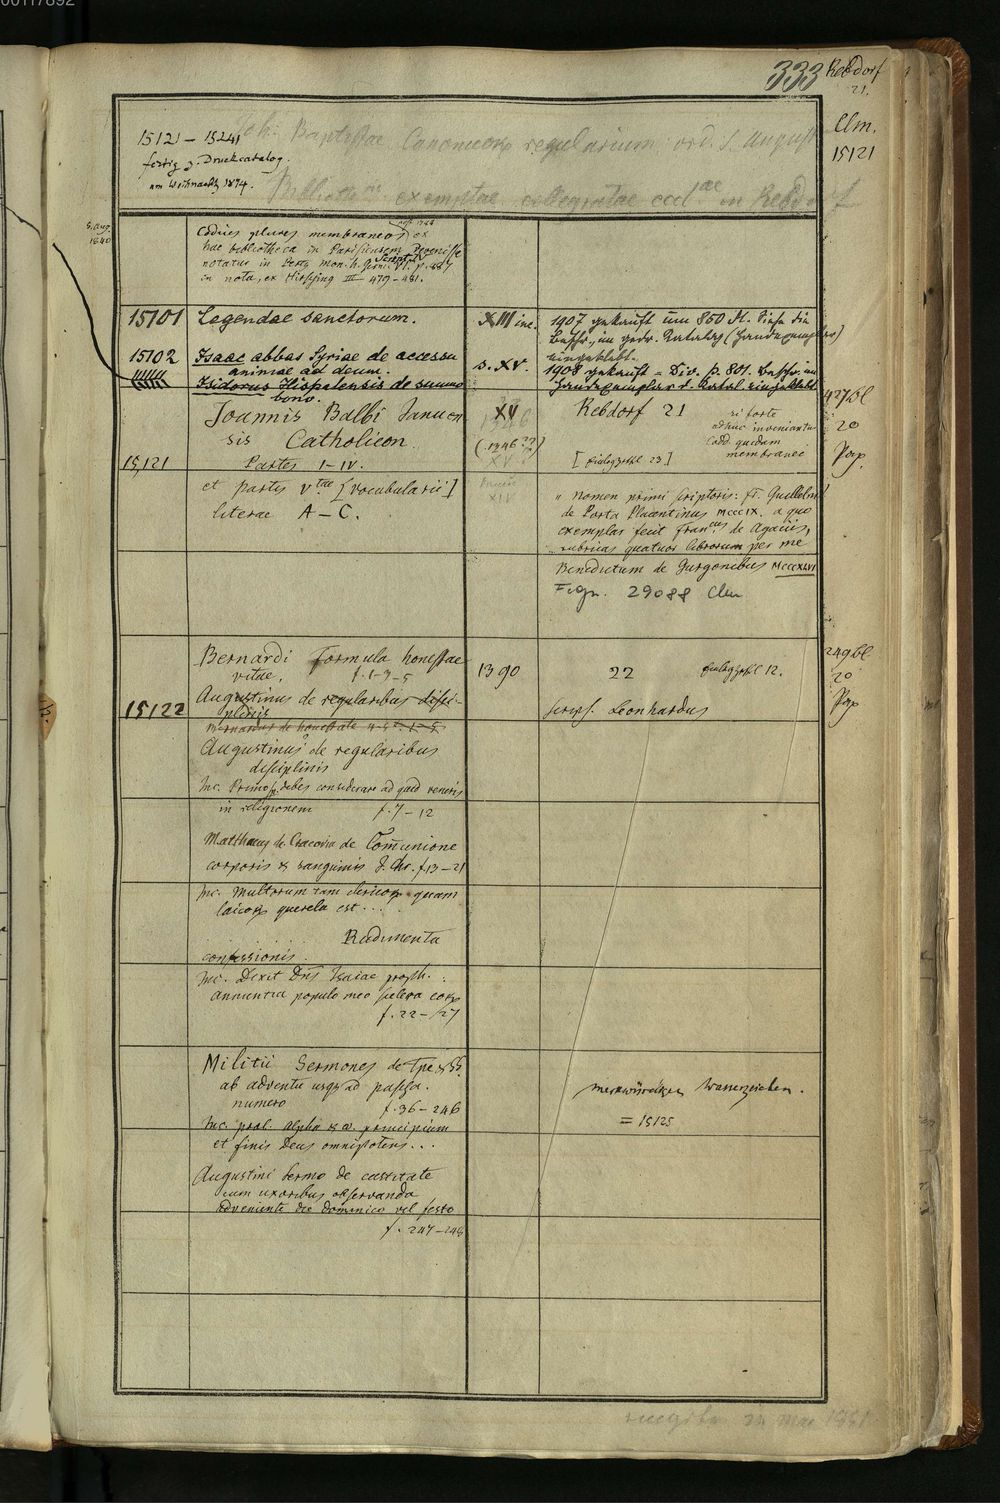 00117892
333
Rebdorf
21.
Clm.
15121
15121 – 15241
fertig z. Druckcatalog.
um Weihnacht 1874.
Joh. Baptistae Canonicor. regularium ord. S. August
exemptae collegiatae eccl ae in Rebdorf
5. Aug.
1840
Codices plures membranaceos ex
hac bibliotheca in Parisiensem devenisse
notatur in Pertz mon. h. Germ. Script. VI. p. 487
in nota, ex Hirsching III 479–481.
15101
Legendae sanctorum.
XIII inc.
1907 gekauft um 850 M. Siehe die
Beschr. im gedr. Katalog (Handexemplar)
eingeklebt.
15102
Isaac abbas Syriae de accessu
animae ad deum.
Isidorus Hispalensis de summo
bono.
s. XV.
1908 gekauft = Div. p. 801. Beschr. im
Handexemplar d. Katal. eingeklebt
Joannis Balbi Januen
sis Catholicon
15,121
Partes I–IV.
et partis V tae [vocabularii]
literae A – C.
XV
1346
(1346??)
XV
XIV
Rebdorf 21
si forte
adhuc inveniantur
Codd. quidam
membranei
[Einlagzahl 23]
427 Bl
2o
Pap.
" nomen primi scriptoris: Fr. Guillelm
de Porta Placentinus MCCCIX. a quo
exemplar fecit Fran cus de Agaciis,
rubricas quatuor librorum per me
Benedictum de Gurgonibus MCCCXLVI
Fragm. 29088 Clm
15122
Bernardi Formula honestae
vitae. f. 1–3–5
Augustinus de regularibus disci-
plinis
Bernardus de honestate
Augustinus de regularibus
disciplinis
Inc. Primo debes considerare ad quid veneris
in religionem f. 7 – 12
1390
22
Einlagzahl 12.
script. Leonhardus
249 Bl
2o
Pap
Matthaeus de Cracovia de Com̄unione
corporis & sanguinis J. Chr. f. 13 – 21
Inc. Multorum tam clericor. quam
laicor. querela est . . .
Rudimenta
confessionis.
Inc. Dixit Dns Isaiae proph. :
annuntia populo meo scelera eor.
f. 22 – 27
Militii Sermones de Tpe & SS.
ab adventu usq. ad pascha.
numero f. 36 – 246
Inc. prol. Alpha & ω. principium
et finis Deus omnipotens . . .
merkwürdiges Wasserzeichen.
= 15125
Augustini Sermo de castitate
cum uxoribus observanda
adveniente die dominico vel festo
f. 247 – 248